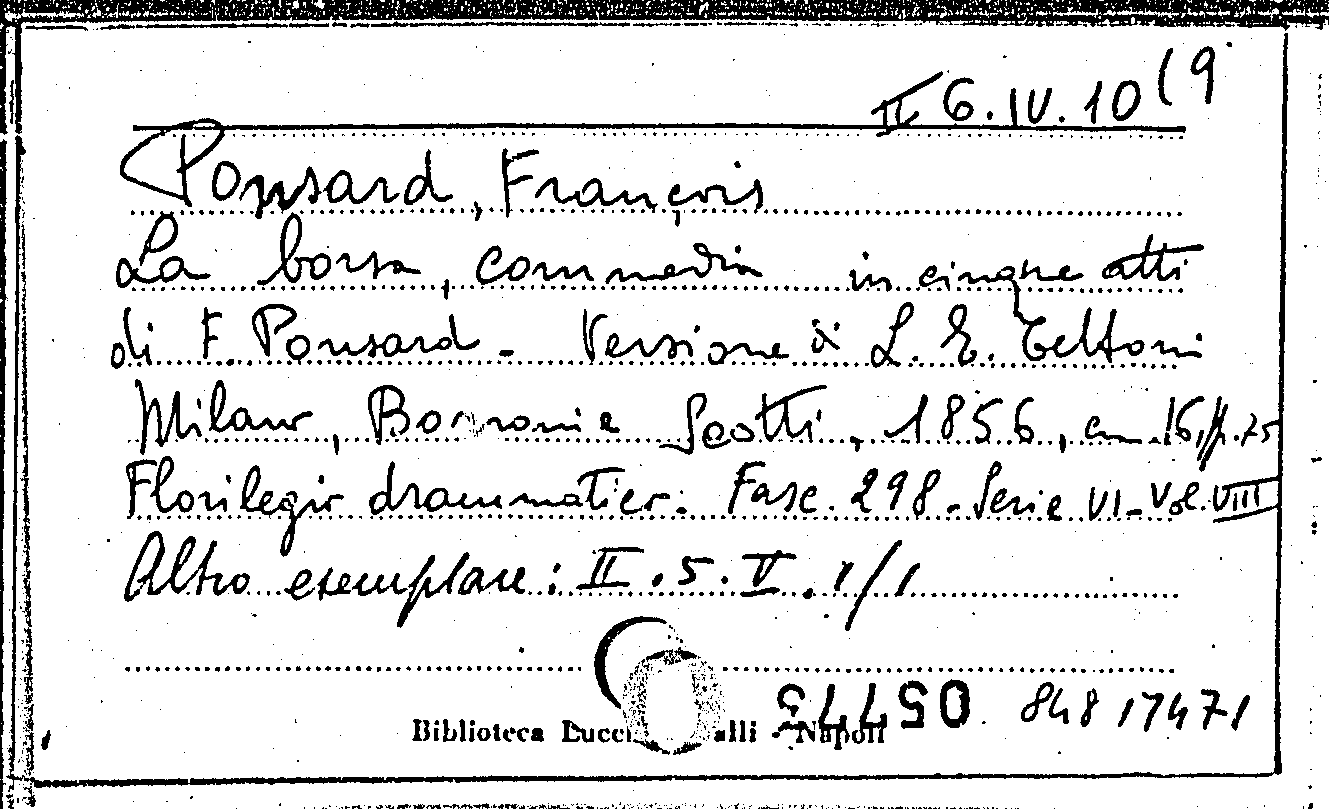 II 6.IV.10(9
Ponsard, François
La borsa, commedia in cinque atti
di F. Ponsard - Versione di L. E. Tettoni
Milano, Borroni e Scotti, 1856, cm. 16, p. 75
Florilegio drammatico. Fasc. 298 - Serie VI - Vol. VIII
Altro esemplare: II. 5. V. 1/1
848 17471
Biblioteca Lucchesi Palli - Napoli